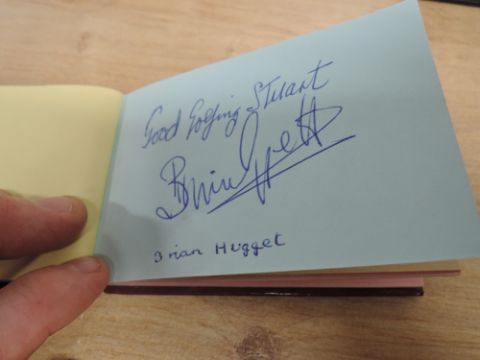 Good Golfing Stuart
Brian Huggett
Brian Hugget